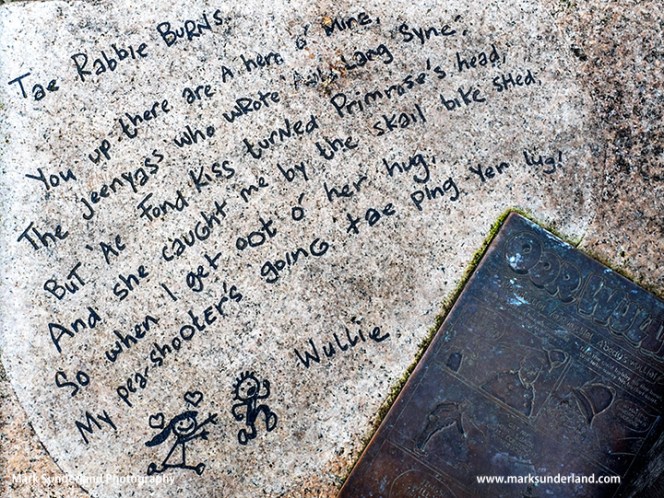 Tae Rabbie Burns.
You up there are a hero o' mine,
The jeenyass who wrote 'Auld Lang Syne'.
But 'Ae Fond Kiss' turned Primrose's head,
And she caught me by the skail bike shed.
So when I get oot o' her hug,
My pea-shooter's going tae ping yer lug!
Wullie
OOR WULLIE
Mark Sunderland Photography
www.marksunderland.com